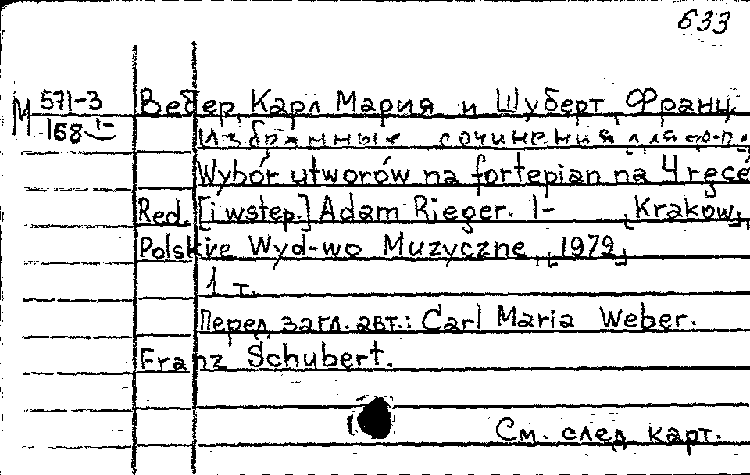 633
М 571-3
158
Вебер, Карл Мария и Шуберт, Франц.
Избранные сочинения для ф-п
Wybór utworów na fortepian na 4 ręce
Red. [i wstęp.] Adam Rieger. 1- [Krakow],
Polskie Wyd-wo Muzyczne, [1979]
1 т.
Перед загл. авт.: Carl Maria Weber.
Franz Schubert.
См. след карт.